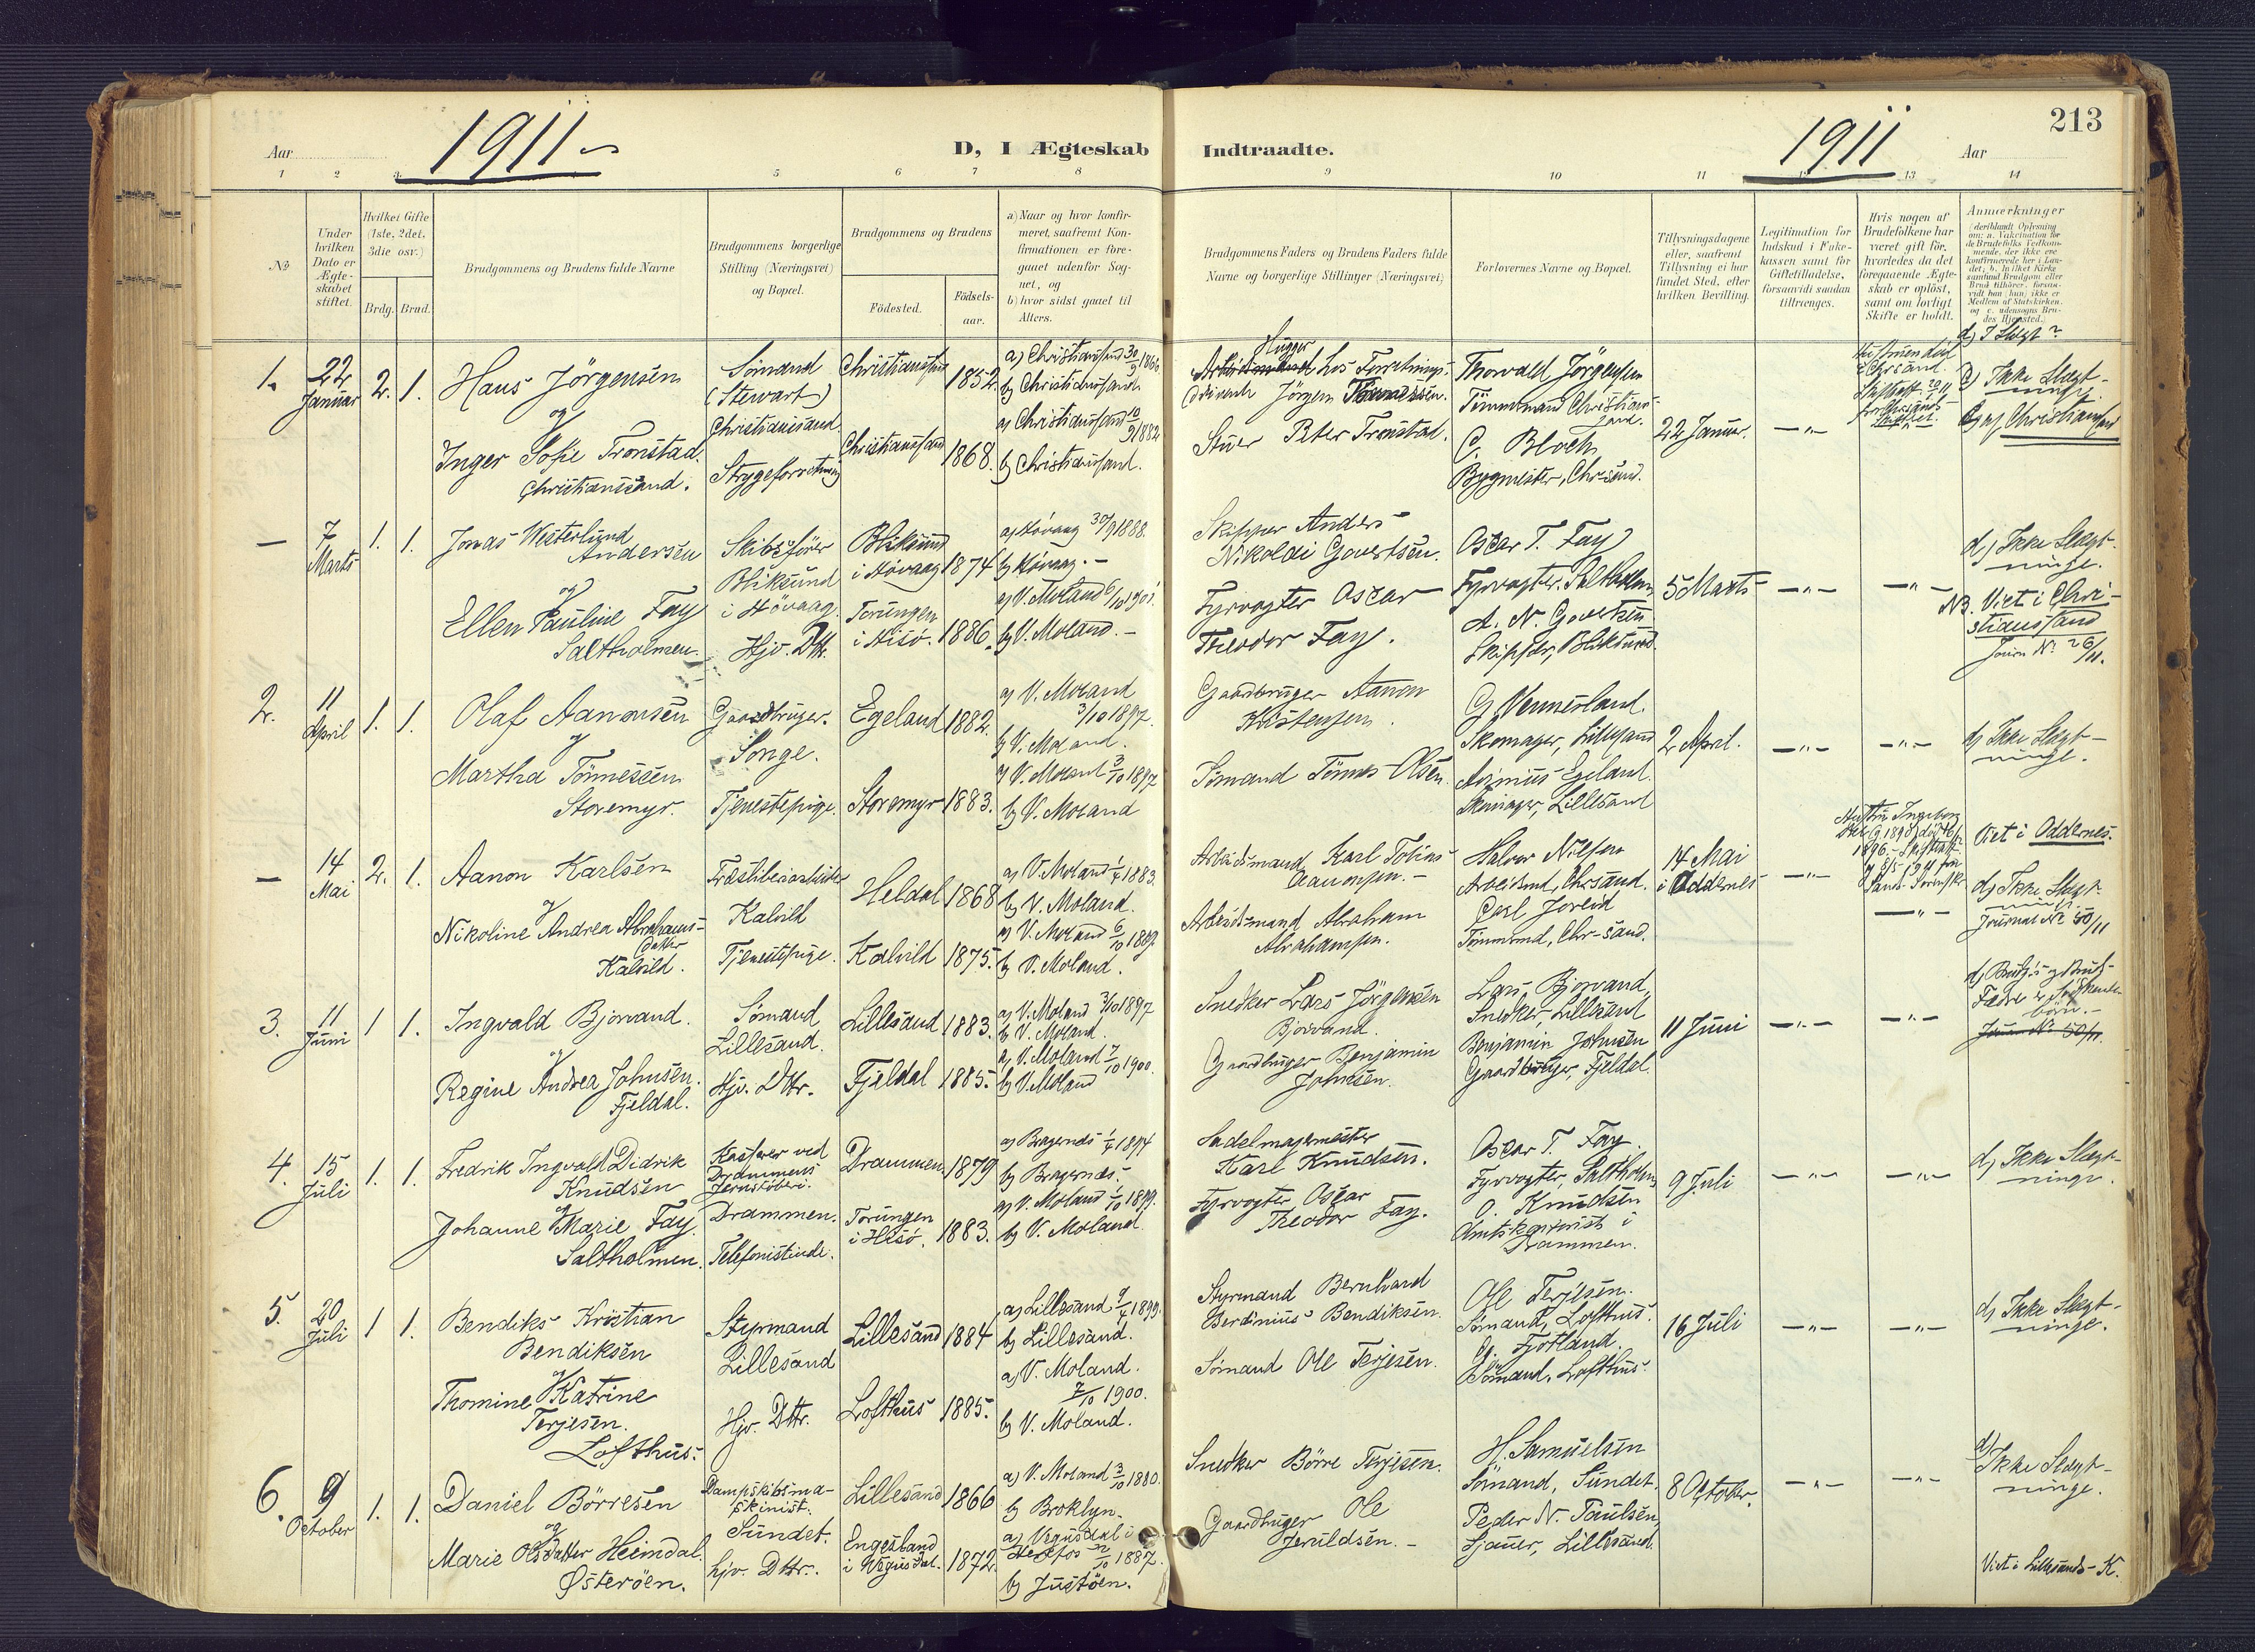 Aar
1911
D, I Ægteskab
Indtraadte.
1911
Aar
213
1 2 3. 5 6 7 8 9 10 11 12 13 14
No
Under hvilken Dato er Ægteskabet stiftet.
Hvilket Gifte (1ste, 2det, 3die osv.)
Brdg.
Brud.
Brudgommens og Brudens fulde Navne
Brudgommens borgerlige Stilling (Næringsvei) og Bopæl.
Brudgommens og Brudens
Födested.
Födsels-aar.
a) Naar og hvor konfir-
meret, saafremt Kon-
firmationen er fore-
gaaet udenfor Sog-
net, og
b) hvor sidst gaaet til
Alters.
Brudgommens Faders og Brudens Faders fulde
Navne og borgerlige Stillinger (Næringsvei)
Forlovernes Navne og Bopæl.
Tillysningsdagene
eller, saafremt
Tillysning ei har
fundet Sted, efter
hvilken Bevilling.
Legitimation for
Indskud i Enke-
kassen samt for
Giftetilladelse,
forsaavidt saadan
tiltrænges.
Hvis nogen af
Brudefolkene har
været gift för,
hvorledes da det
foregaaende Ægte-
skab er oplöst,
samt om lovligt
Skifte er holdt.
Anmærkninger
1.
22 Januar
2. 1.
Hans Jörgensen
og
Inger Sofie Tronstad.
Christianssand.
Sömand
(Stewart)
Christianssand
Christianssand
1852.
1868.
a) Christianssand 30/9 1866
b) Christianssand
a) Christianssand 10/9 1882
b) Christianssand.
Hugger
Jörgen
Stuer Peter Tronstad.
Thorvald Jörgensen
Tömmermand Christians-
sand.
C. Bloch
Bygmester, Chr-sand.
22 Januar.
d) Ikke Slægt-
ninge
Christianssand
—
7 Marts
1. 1.
Jonas Westerlund
Andersen
og
Ellen Pauline Fay
Saltholmen.
Skibsförer
Bliksund
i Hövaag.
Hjv. Dttr.
Bliksund
i Hövaag
1874
Torungen
i Hisö.
1886.
a) Hövaag 30/9 1888.
b) Hövaag. -
a) V. Moland 6/10 1901.
b) V. Moland. -
Skipper Anders
Nikolai Govertsen.
Fyrvogter Oscar
Theodor Fay.
Oscar T. Fay
Fyrvogter, Saltholmen
A. N. Govertsen
Skipper, Bliksund.
5 Marts
d) Ikke Slægt-
ninge.
NB. Viet i Chri-
stianssand
Journ No. 26/11.
2.
11 April
1. 1.
Olaf Aanonsen
og
Martha Tönnessen
Storemyr.
Gaardbruger.
Songe.
Tjenestepige.
Egeland
1882.
Storemyr
1883.
a) V. Moland
3/10 1897.
b) V. Moland.
a) V. Moland 3/10 1897
b) V. Moland
Gaardbruger Aanon
Kristensen.
Sömand Tönnes Olsen.
G. Vennesland.
Skomager, Lillesand
Asimus Egeland.
Skomager, Lillesand
2 April.
d) Ikke Slægt-
ninge.
—
14 Mai
2. 1.
Aanon Karlsen
og
Nikoline Andrea Abrahams-
datter
Kalvild.
Træsliberiarbeider
Kalvild
Tjenestepige.
Heldal
1868
Kalvild
1875.
a) V. Moland 1/4 1883.
b) V. Moland.
a) V. Moland 6/10 1889
b) V. Moland.
Arbeidsmand Karl Tobias
Aanonsen. -
Arbeidsmand Abraham
Abrahamsen.
Halvor Nilsen
Arbeidsmd, Chrsand.
Carl Joreid
Tömmermd, Chr-sand.
14 Mai
i Oddernes
Hustru Ingeborg
Viet i Oddernes.
d) Ikke Slægt-
ninge.
Journal No 50/11
3.
11 Juni
1 1.
Ingvald Bjorvand.
og
Regine Andrea Johnsen.
Fjeldal.
Sömand
Lillesand.
Hjv. Dttr.
Lillesand
1883.
Fjeldal
1885.
a) V. Moland 3/10 1897
b) V. Moland.
a) V. Moland 7/10 1900.
b) V. Moland
Snedker Lars Jörgensen
Bjorvand.
Gaardbruger Benjamin
Johnsen.
Lars Bjorvand,
Snedker, Lillesand
Benjamin Johnsen
Gaardbruger, Fjeldal.
11 Juni
4.
15 Juli
1. 1.
Fredrik Ingvald Didrik
Knudsen
og
Johanne Marie Fay.
Saltholmen.
Kasserer ved
Drammens
Jernstöberi.
Drammen.
Telefonistinde.
Drammen.
1879
Torungen
i Hisö.
1883.
a) Bragernæs 1/4 1894
b) Bragernæs.
a) V. Moland 1/10 1899.
b) V. Moland
Sadelmagermester
Karl Knudsen.
Fyrvogter Oscar
Theodor Fay.
Oscar T. Fay.
Fyrvogter, Saltholmen
O. Knudsen
i
Drammen.
9 Juli
d) Ikke Slægt-
ninge.
5.
20 Juli
1 1.
Bendiks Kristian
Bendiksen
og
Thomine Katrine
Terjesen.
Lofthus.
Styrmand
Lillesand
Hjv. Dttr.
Lillesand
1884
Lofthus
1885.
a) Lillesand 9/4 1899.
b) Lillesand.
a) V. Moland.
7/10 1900.
b) V. Moland.
Styrmand Bernhard
Berdinius Bendiksen.
Sömand Ole Terjesen.
Ole Terjesen.
Sömand, Lofthus.
G. Fjotland.
Sömand, Lofthus.
16 Juli
d) Ikke Slægt-
ninge.
6.
9 October
1. 1.
Daniel Börresen
og
Marie Olsdatter Heimdal.
Østeröen.
Dampskibsma-
skinist.
Sundet.
hjv. Dttr.
Lillesand
1866
Engesland
i Vegusdal.
1872.
a) V. Moland 3/10 1880.
b) Broklyn.
a) Vegusdal i
Herefos 2/10 1887.
b) Justöen.
Snedker Börre Terjesen.
Gaardbruger Ole
Jeruldsen. -
H. Samuelsen
Sömand, Sundet.
Peder N. Paulsen,
Lillesand.
8 October.
d) Ikke Slægt-
ninge.
Viet i Lillesands-K.